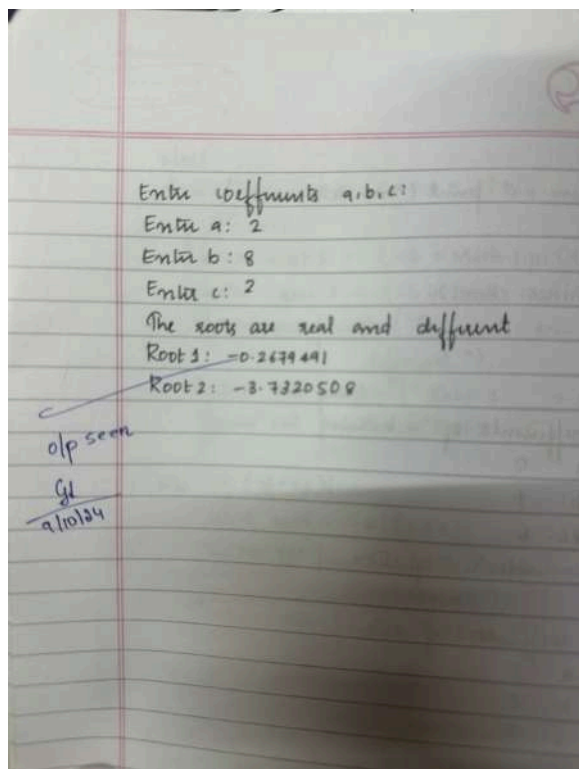 Enter coefficients a,b,c:
Enter a: 2
Enter b: 8
Enter c: 2
The roots are real and different
Root 1: -0.2679491
Root 2: -3.7320508
o/p seen
9/10/24